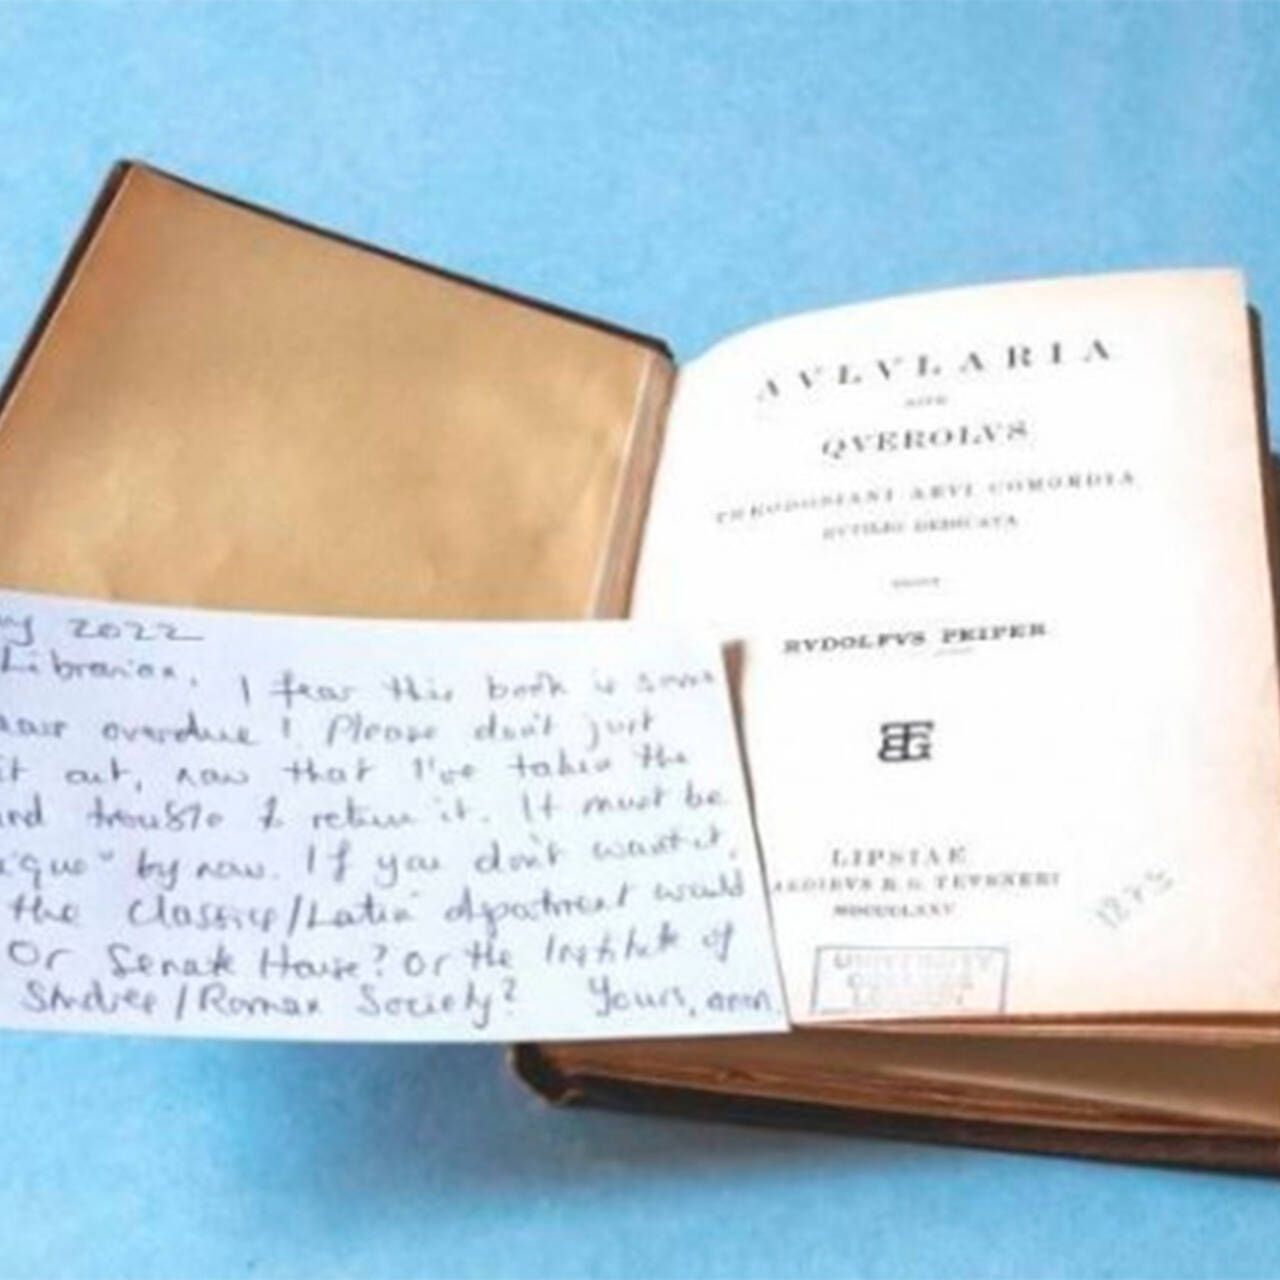 2022
Librarian, I fear this book is some
overdue! Please don't just
it out, now that I've taken the
trouble to return it. It must be
que" by now. If you don't want it,
the Classics/Latin department would
Or Senate House? Or the Institute of
Studies/Roman Society? Yours, anon.
AVLVLARIA
SIVE
QVEROLVS
THEODOSIANI AEVI COMOEDIA
RVTILIO DEDICATA
RVDOLFVS PEIPER
BTG
LIPSIAE
AEDIBVS B. G. TEVBNERI
MDCCCLXXV
1875
UNIVERSITY
COLLEGE
LONDON